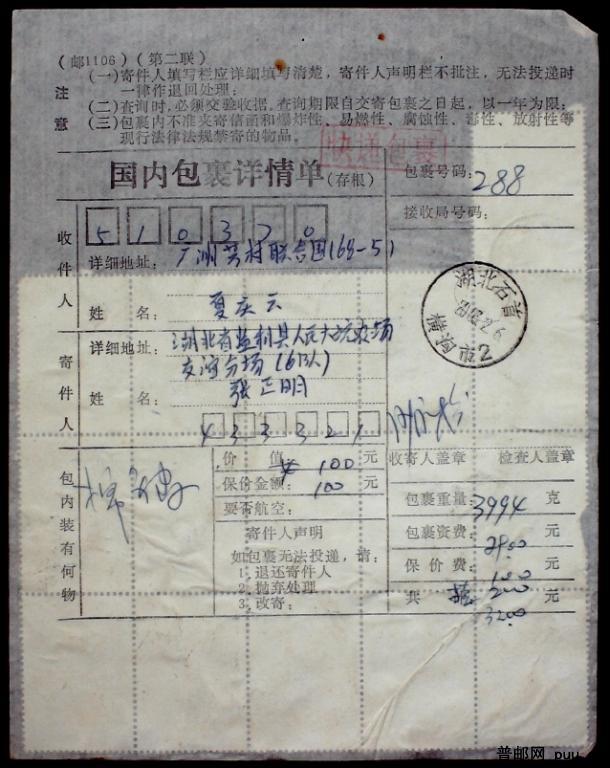 (邮1106)(第二联)
注意
(一)寄件人填写栏应详细填写清楚,寄件人声明栏不批注,无法投递时
一律作退回处理;
(二)查询时,必须交验收据,查询期限自交寄包裹之日起,以一年为限;
(三)包裹内不准夹寄信函和爆炸性、易燃性、腐蚀性、毒性、放射性等
现行法律法规禁寄的物品。
快递包裹
国内包裹详情单(存根)
包裹号码:288
接收局号码:
收件人
510370
详细地址:广州芳村联合围(68-5)
姓名:夏庆云
湖北石首
寄件人
详细地址:湖北省监利县人民大垸农场
分场(6队)
姓名:张正明
433321
包内装有何物
价值 ¥100元
保价金额:100元
要否航空:
寄件人声明
如包裹无法投递,请:
1.退还寄件人
2.抛弃处理
3.改寄:
收寄人盖章
检查人盖章
包裹重量:3994克
包裹资费:2800元
保价费:100元
共 元
200
3200
普邮网 puu